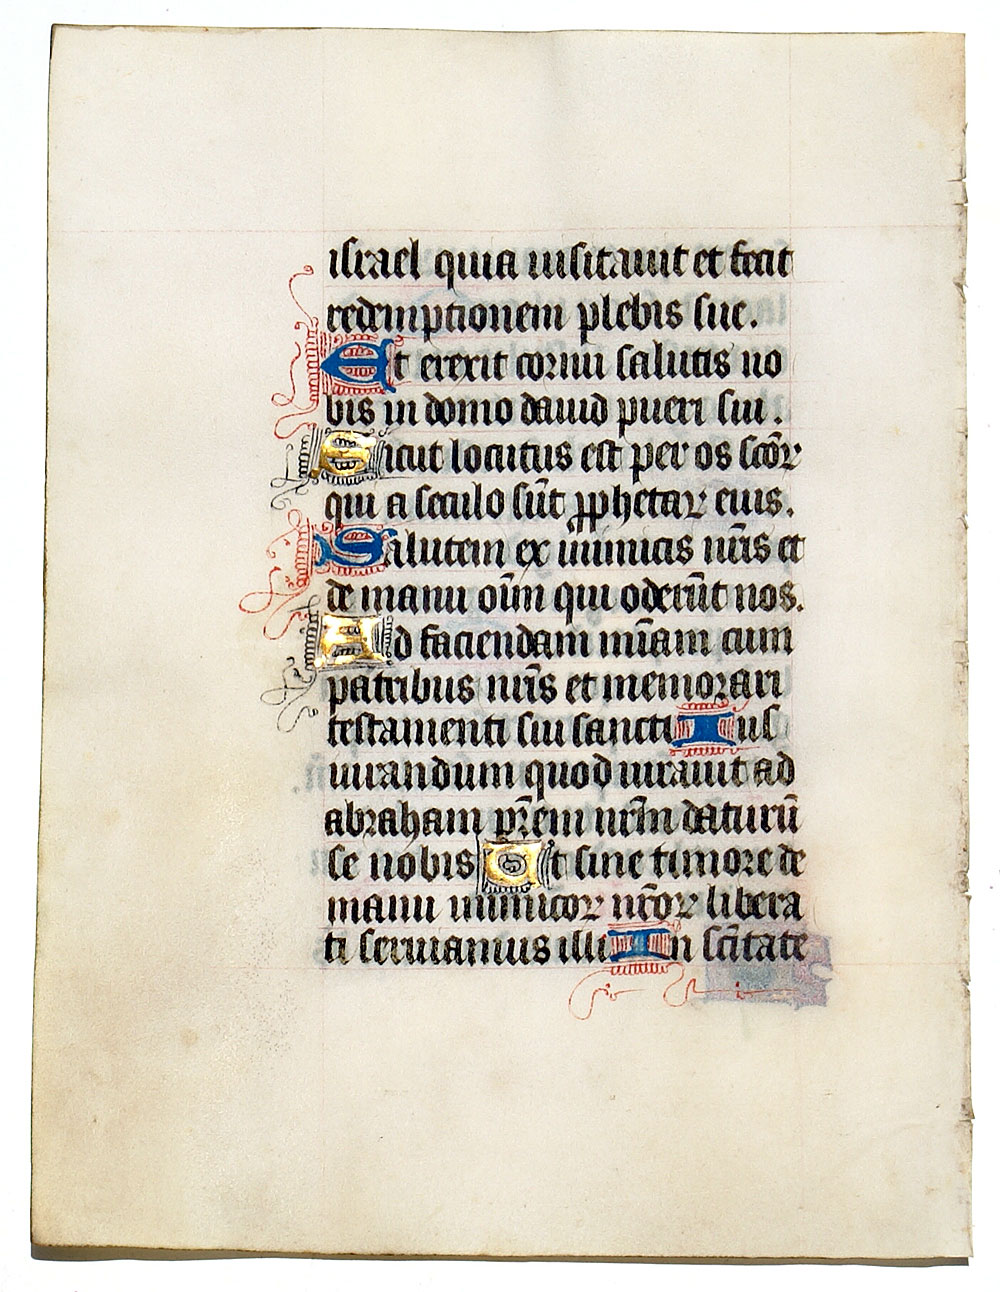 israel quia uisitauit et fecit
redemptionem plebis sue.
Et erexit cornu salutis no
bis in domo dauid pueri sui.
Sicut locutus est per os scõꝝ
qui a seculo sũt ꝓphetaꝝ eius.
Salutem ex inimicis nr̃is et
de manu oĩm qui oderũt nos.
Ad faciendam mĩam cum
patribus nr̃is et memorari
testamenti sui sancti Ius
iurandum quod iurauit ad
abraham pr̃em nr̃m daturũ
se nobis Ut sine timore de
manu inimicoꝝ nr̃oꝝ libera
ti seruiamus illi In scĩtate